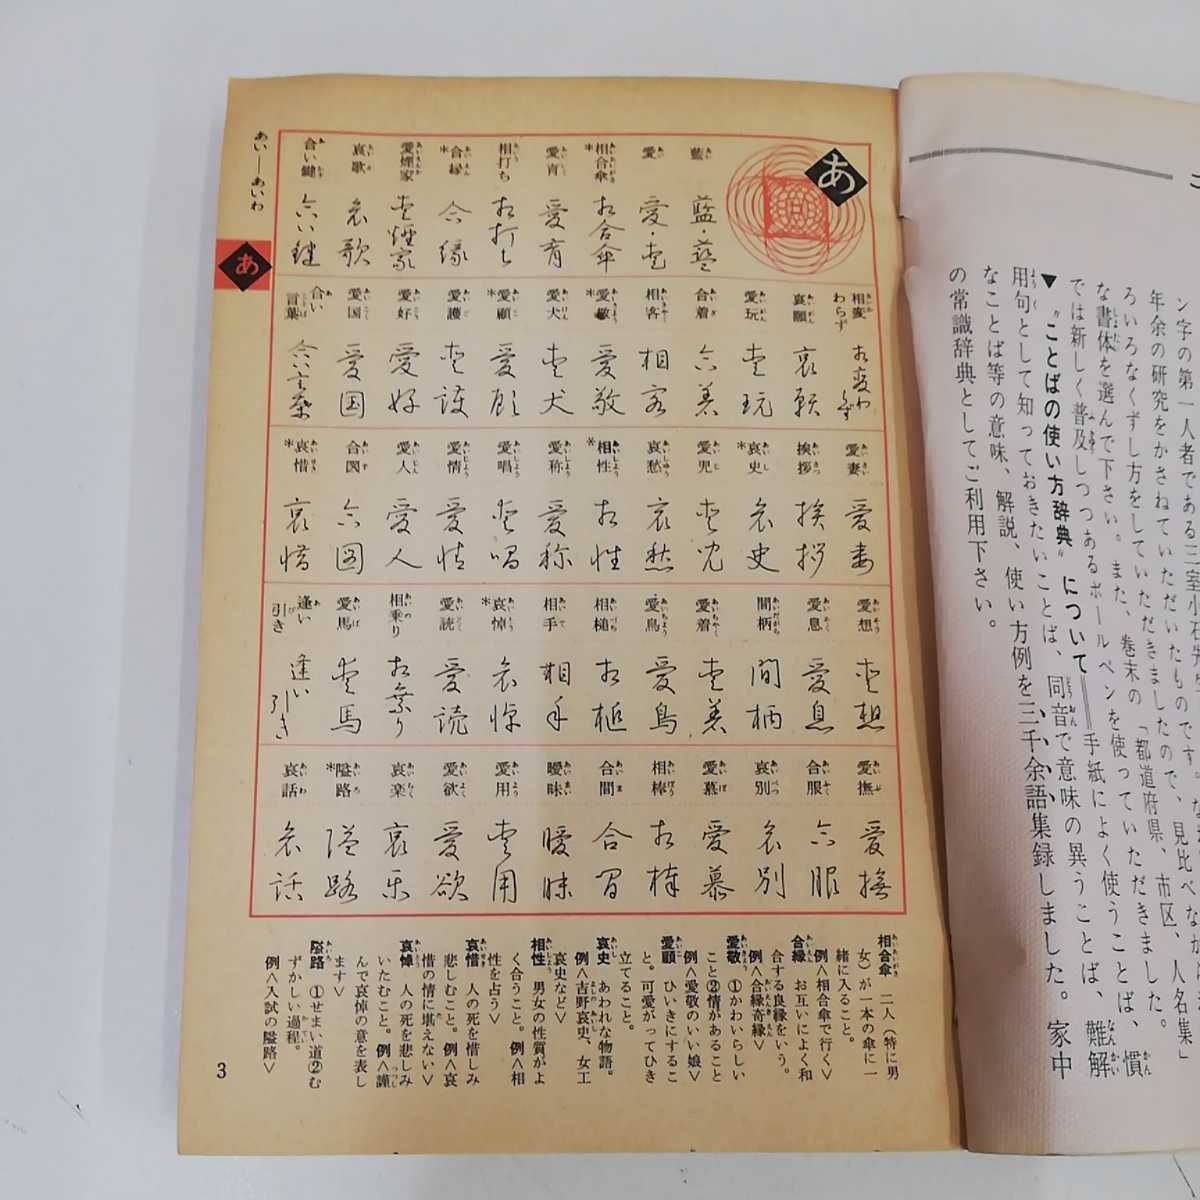 ン字の第一人者である三室小石先生
年余の研究をかさねていただいたものです。なお
ろいろなくずし方をしていただきましたので、見比べながら
な書体を選んで下さい。また、巻末の「都道府県、市区、人名集」
では新しく普及しつつあるボールペンを使っていただきました。
▼〝ことばの使い方辞典〟について＝手紙によく使うことば、慣
用句として知っておきたいことば、同音で意味の異うことば、難解
なことば等の意味、解説、使い方例を三千余語集録しました。家中
の常識辞典としてご利用下さい。
あ
藍 藍・藍
愛 愛・愛
*相合傘 相合傘
愛育 愛育
相打ち 相打ち
*合縁 合縁
愛煙家 愛煙家
哀歌 哀歌
合い鍵 合い鍵
相変わらず 相変わらず
哀願 哀願
愛玩 愛玩
合着 合着
相客 相客
*愛敬 愛敬
愛犬 愛犬
*愛顧 愛顧
愛護 愛護
愛好 愛好
愛国 愛国
合い言葉 合い言葉
愛妻 愛妻
挨拶 挨拶
*哀史 哀史
愛児 愛児
哀愁 哀愁
*相性 相性
愛称 愛称
愛唱 愛唱
愛情 愛情
愛人 愛人
合図 合図
*哀惜 哀惜
愛想 愛想
愛息 愛息
間柄 間柄
愛着 愛着
愛鳥 愛鳥
相槌 相槌
相手 相手
*哀悼 哀悼
愛読 愛読
相乗り 相乗り
愛馬 愛馬
逢い引き 逢い引き
愛撫 愛撫
合服 合服
哀別 哀別
愛慕 愛慕
相棒 相棒
合間 合間
曖昧 曖昧
愛用 愛用
愛欲 愛欲
哀楽 哀楽
*隘路 隘路
哀話 哀話
相合傘 二人（特に男
女）が一本の傘に一
緒に入ること。
例＜相合傘で行く＞
合縁 お互いによく和
合する良縁をいう。
例＜合縁奇縁＞
愛敬 ①かわいらしい
こと②情があること
例＜愛敬のいい娘＞
愛顧 ひいきにするこ
と。可愛がってひき
立てること。
哀史 あわれな物語。
例＜吉野哀史、女工
哀史など＞
相性 男女の性質がよ
く合うこと。例＜相
性を占う＞
哀惜 人の死を惜しみ
悲しむこと。例＜哀
惜の情に堪えない＞
哀悼 人の死を悲しみ
いたむこと。例＜謹
んで哀悼の意を表し
ます＞
隘路 ①せまい道②む
ずかしい過程。
例＜入試の隘路＞
あい――あいわ
あ
3